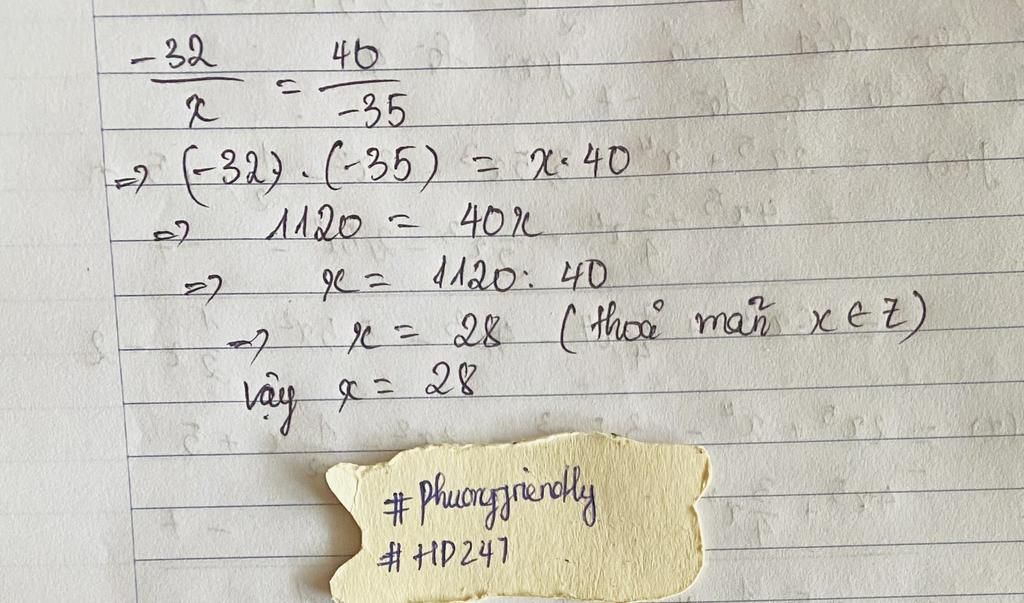 -32/x = 40/-35
=> (-32) . (-35) = x . 40
=> 1120 = 40x
=> x = 1120 : 40
=> x = 28 (thoả mãn x ∈ Z)
vậy x = 28
# Phuongfriendly
# HD247